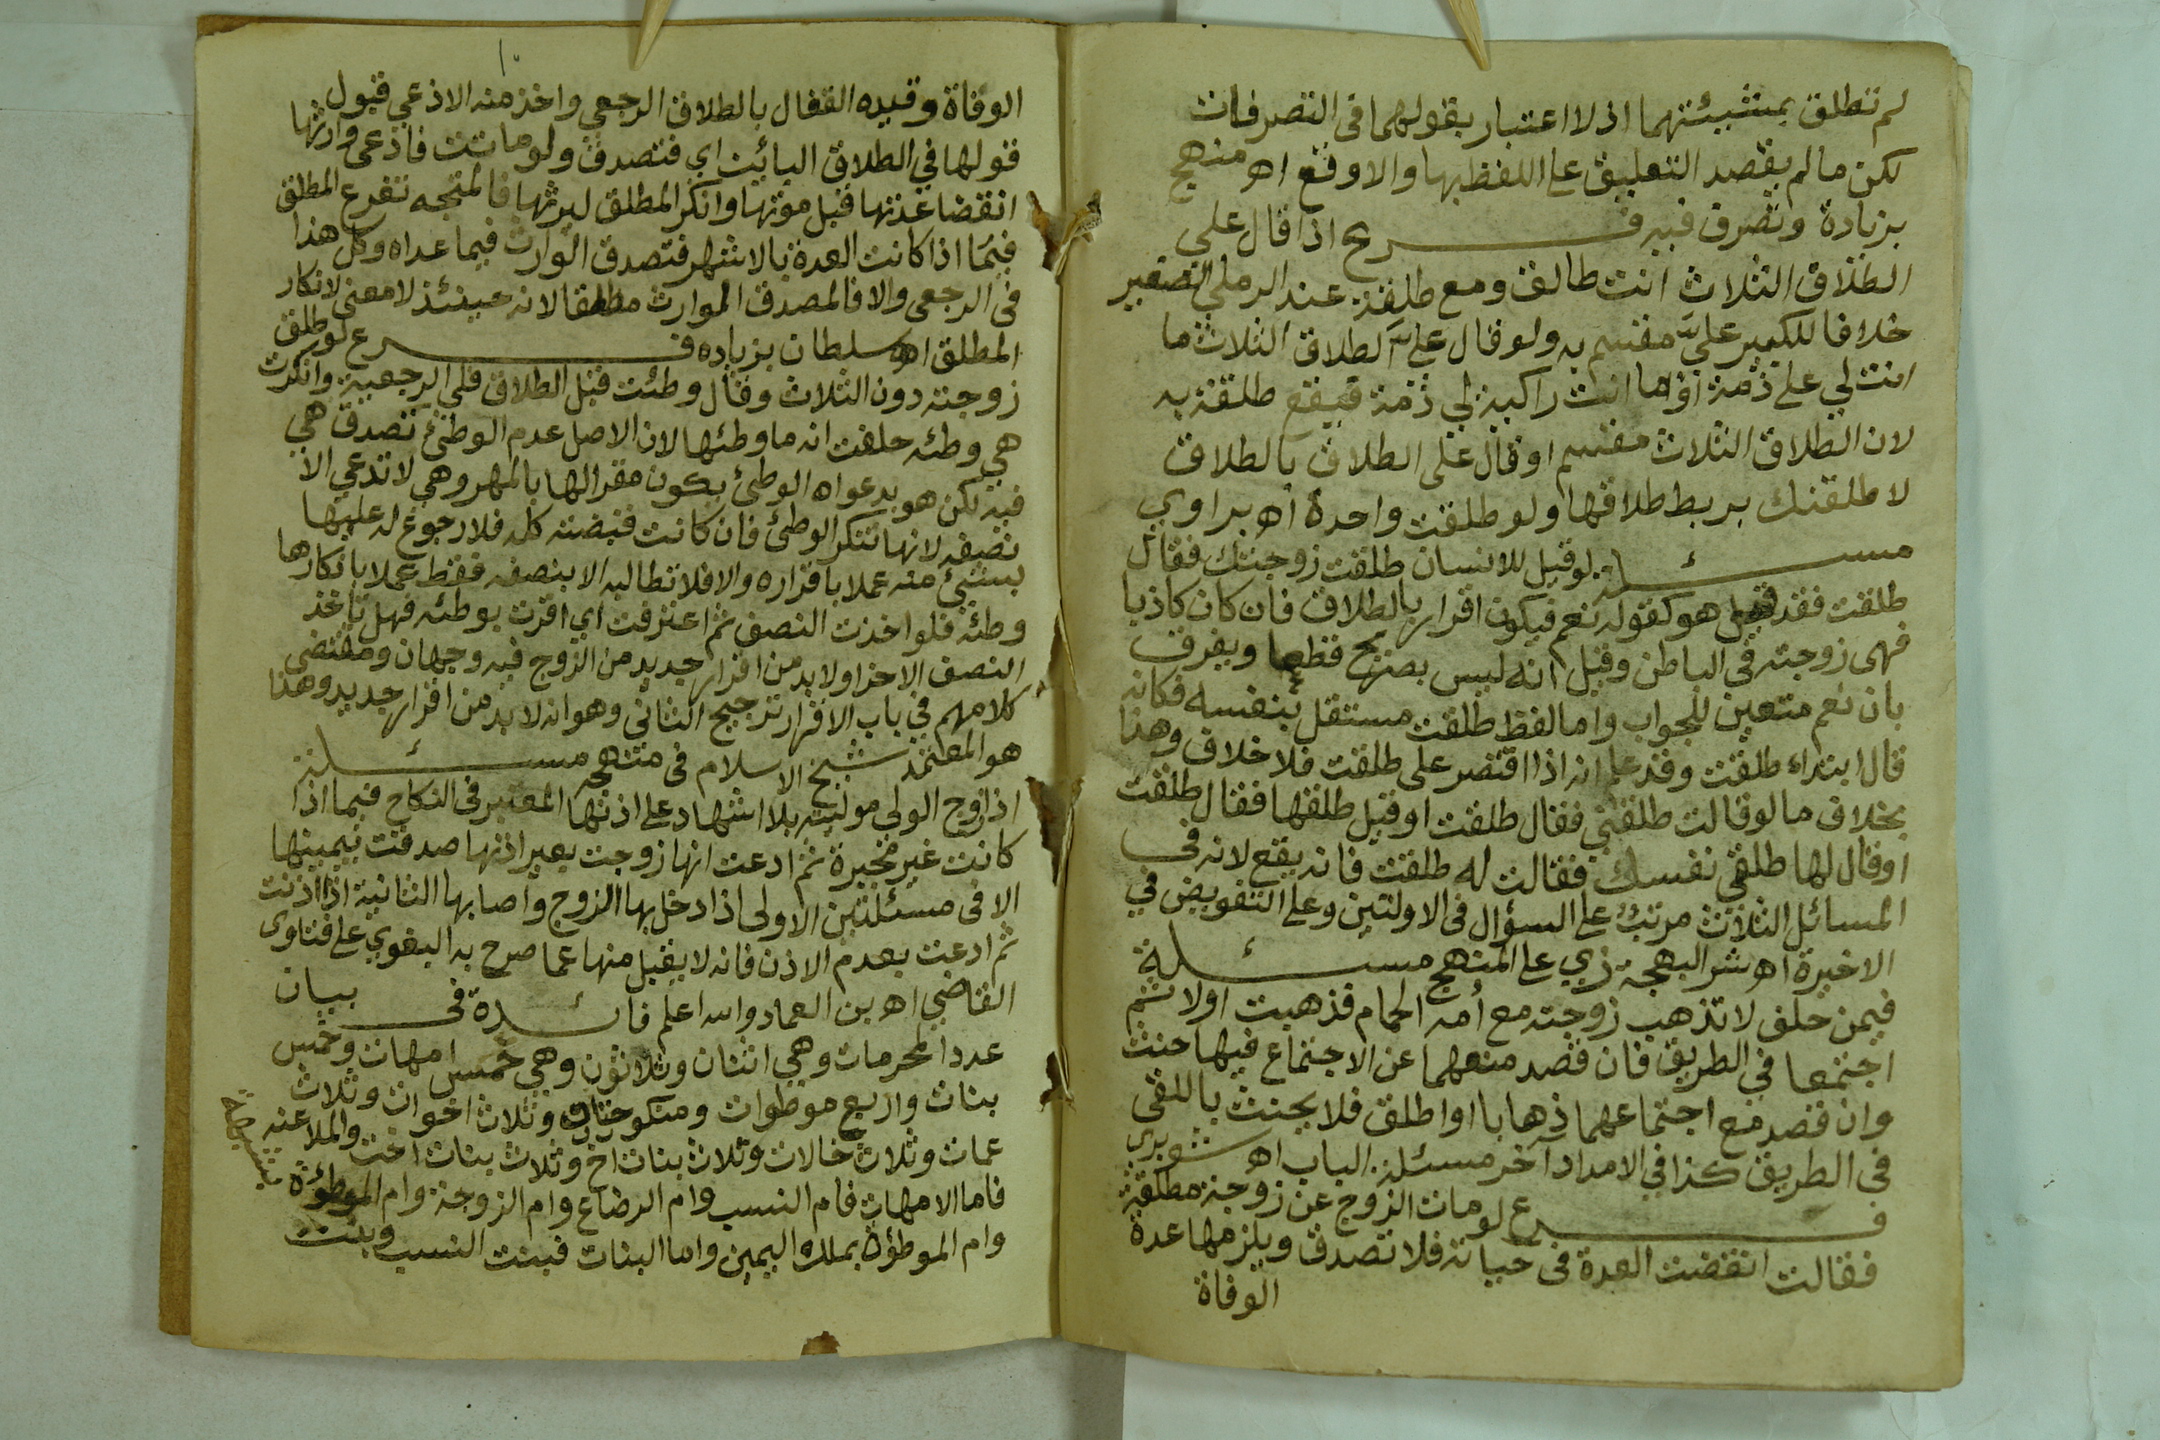 لم تطلق بمشيئتهما اذ لا اعتبار بقولهما في التصرفات
لكن ما لم يقصد التعليق على اللفظ بها والا وقع اهـ منهج
بزيادة وتصرف فيه فرع اذا قال علي
الطلاق الثلاث انت طالق ومع طلقة عند الرملي الصغير
خلافا للكبير عليّ مقسم به ولو قال عليّ الطلاق الثلاث ما
انت لي على ذمة او ما انت راكبة لي ذمة فيقع طلقة به
لان الطلاق الثلاث مقسم او قال على الطلاق بالطلاق
لا طلقنك بربط طلاقها ولو طلقت واحدة اهـ براوي
مسئلة لو قيل للانسان طلقت زوجتك فقال
طلقت فقد قيل هو كقوله نعم فيكون اقرار بالطلاق فان كان كاذبا
فهى زوجته في الباطن وقيل انه ليس بصريح قطعا ويفرق
بان نعم متعين للجواب واما لفظ طلقت مستقل بنفسه فكانه
قال ابتداء طلقت وقد علم انه اذا اقتصر على طلقت فلا خلاف وهذا
بخلاف ما لو قالت طلقني فقال طلقت او قيل طلقها فقال طلقت
او قال لها طلقي نفسك فقالت له طلقت فانه يقع لانه في
المسائل الثلاث مرتب على السؤال في الاولتين وعلى التفويض في
الاخيرة اهـ شر البهجة زي على المنهج مسئلة
فيمن حلف لا تذهب زوجته مع أمه الحمام فذهبت اولا ثم
اجتمعا في الطريق فان قصد منعهما عن الاجتماع فيها حنث
وان قصد منع اجتماعهما ذهابا او اطلق فلا يحنث باللقى
في الطريق كذا في الامداد آخر مسئلة الباب اهـ شوبري
فرع لو مات الزوج عن زوجة مطلقة
فقالت انقضت العدة في حياته فلا تصدق ويلزمها عدة
الوفاة
١٠
الوفاة وقيده القفال بالطلاق الرجعي واخذ منه الاذعي قبول
قولها في الطلاق البائن اي فتصدق ولو ماتت فادعى وارثها
انقضا عدتها قبل موتها وانكر المطلق ليرثها فالمتجه تفرع المطلق
فيما اذا كانت العدة بالاشهر فتصدق الوارث فيما عداه وكل هذا
في الرجعى والا فالمصدق الموارث مطلقا لانه حينئذ لا معنى لانكار
المطلق اهـ سلطان بزياده فرع لو طلق
زوجته دون الثلاث وقال وطئت قبل الطلاق فلي الرجعية وانكرت
هي وطئه حلفت انه ما وطئها لان الاصل عدم الوطئ تصدق هي
فيه لكن هو بدعواه الوطئ يكون مقرا لها بالمهر وهي لا تدعي الا
نصيفه لانها تنكر الوطئ فان كانت قبضته كله فلا رجوع له عليها
بشئ منه عملا باقراره والا فلا تطالبه الا بنصفه فقط عملا بانكارها
وطئه فلو اخذت النصف ثم اعترفت اي اقرت بوطئه فهل تاخذ
النصف الاخر او لا بد من اقرار جديد من الزوج فيه وجهان ومقتضى
كلامهم في باب الاقرار ترجيح الثاني وهو انه لا بد من اقرار جديد وهذا
هو المعتمد شيخ الاسلام في منهجه مسئلة
اذا زوج الولي موليته بلا اشهاد على اذنها المعتبر في النكاح فيما اذا
كانت غير مجبرة ثم ادعت انها زوجت بغير اذنها صدقت بيمينها
الا في مسئلتين الاولى اذا دخل بها الزوج واصابها الثانية اذا اذنت
ثم ادعت بعدم الاذن فانه لا يقبل منها عما صرح به البغوي على فتاوى
القاضي اهـ بن العماد والله اعلم فائدة في بيان
عدد المحرمات وهي اثنتان وثلاثون وهي خمس امهات وخمس
بنات واربع موطوات ومنكوحتان وثلاث اخوات وثلاث
عمات وثلاث خالات وثلاث بنات اخ وثلاث بنات اخت والملاعنه
فاما الامهات فام النسب وام الرضاع وام الزوجة وام الموطؤة
وام الموطؤة بملك اليمين واما البنات فبنت النسب وبنت